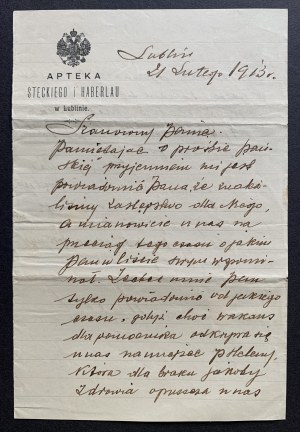 APTEKA
STECKIEGO I HABERLAU
w Lublinie.
Lublin
21 Lutego 1913 r.
Szanowny Panie.
Pamiętając o prośbie Pań-
skiej przyjemnie mi jest
powiadomić Pana, że znaleź-
liśmy zastępstwo dla Niego,
a mianowicie u nas na
przeciąg tego czasu o jakim
Pan w liście swym wspomi-
nał. Zechce mnie Pan
tylko powiadomić od jakiego
czasu, gdyż choć wakans
dla pomocnika odkrywa się
u nas na miejsce p. Heleny,
która dla braku jakoby
zdrowia opuszcza u nas